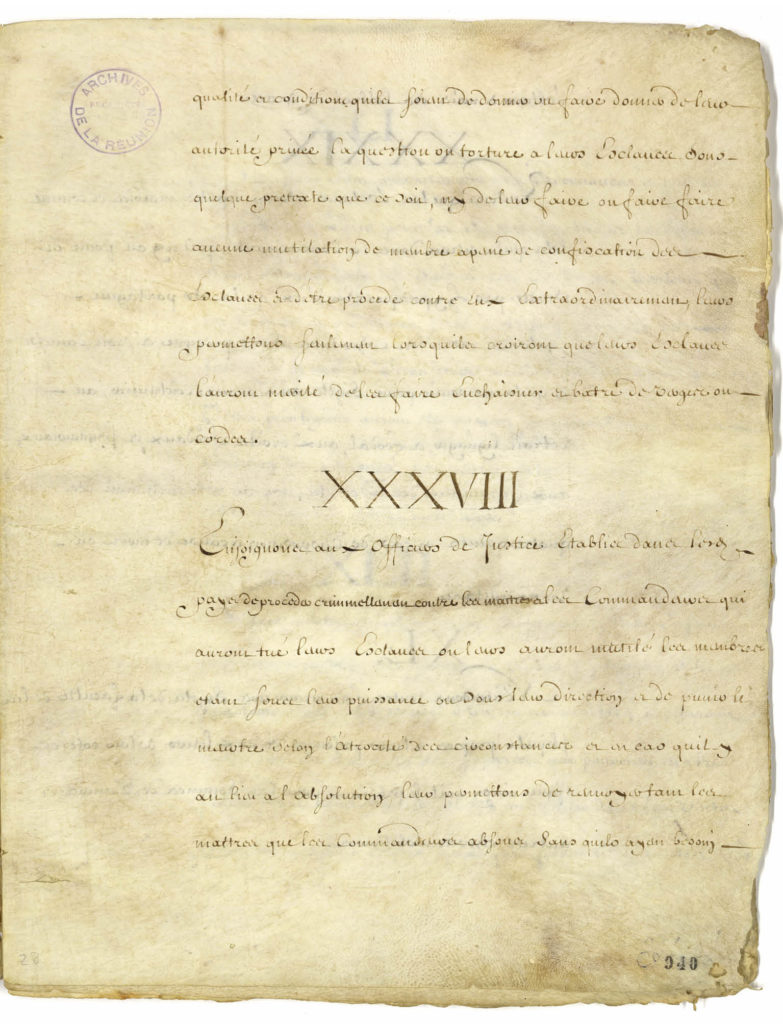 ARCHIVES
DE LA RÉUNION
qualité et condition quils soient de donner ou faire donner de leur
autorité privée la question ou torture a leurs Esclaves sous
quelque pretexte que ce soit, ny de leur faire ou faire faire
aucune mutilation de membre apeine de confiscation des
Esclaves et d'être procedé contre eux Extraordinairement, leurs
permettons seulement lorsquils croiront que leurs Esclaves
l'auront merité de les faire Enchaisner et batre de verges ou
cordes.
XXXVIII
Enjoignons aux Officiers de Justice Etablis dans lesd
payes de proceder criminellement contre les maitres et les Commandeurs qui
auront tué leurs Esclaves ou leurs auront mutilé les membres
etant sous leur puissance ou sous leur direction et de punir le
meurtre selon l'atrocité des circonstances et en cas quil y
au lieu a l'absolution leur permettons de renvoyer tant les
maitres que les Commandeurs absous sans quils ayent besoin
28
040